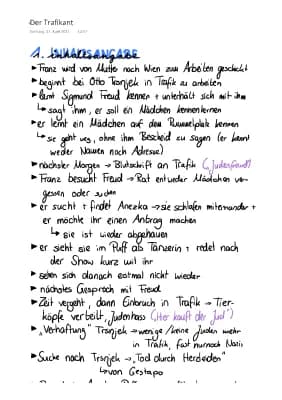 Der Trafikant
1. INHALTSANGABE
▸Franz wird von Mutter nach Wien zum Arbeiten geschickt
▸beginnt bei Otto Trsnjek in Trafik zu arbeiten
▸lernt Sigmund Freud kennen + unterhält sich mit ihm
↳sagt ihm, er soll ein Mädchen kennenlernen
▸er lernt ein Mädchen auf dem Rummelplatz kennen
↳sie geht weg, ohne ihm Bescheid zu sagen (er kennt
weder Namen noch Adresse)
▸nächster Morgen → Blutschrift an Trafik (Judenfreund)
▸Franz besucht Freud → Rat entweder Mädchen ver-
gessen oder suchen
▸er sucht + findet Anezka → sie schlafen miteinander +
er möchte ihr einen Antrag machen
↳ sie ist wieder abgehauen
▸er sieht sie im Puff als Tänzerin + redet nach
der Show kurz mit ihr
▸sehen sich danach erstmal nicht wieder
▸nächstes Gespräch mit Freud
▸Zeit vergeht, dann Einbruch in Trafik → Tier-
köpfe verteilt, Judenhass (Hier kauft der Jud)
▸„Verhaftung" Trsnjek → wenige/keine Juden mehr
in Trafik, fast nur noch Nazis
▸Suche nach Trsnjek → „Tod durch Herzleiden"
↳von Gestapo